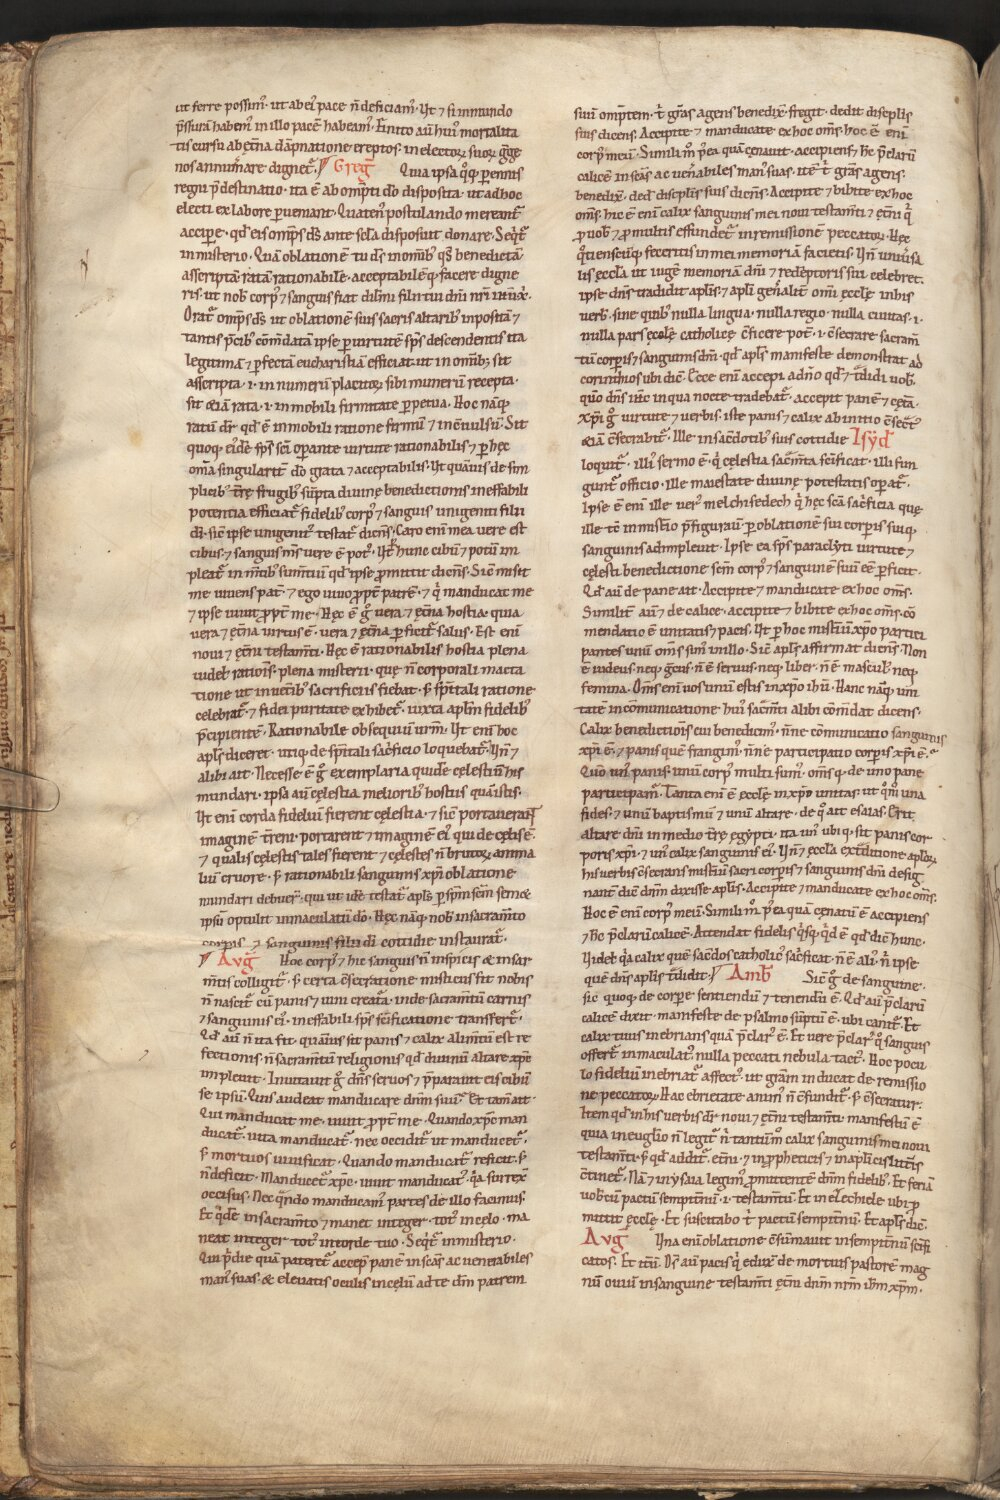 ut ferre possim᷒· ut ab ei᷒ pace n̄ deficiam᷒· Ut ⁊ si in mundo
p̄ssurā habem᷒ in illo pacē habeam᷒· Finito aū hui᷒ mortalita
tis cursu ab ęt̄na dāpnatione ereptos· in electoꝝ suoꝝ g̃ge
nos annum̃are dignet᷑· Greg̃ Quia ipsa q̊q; ꝑennis
regni p̄destinatio· ita ē ab omp̄ti dō disposita· ut ad hoc
electi ex labore ꝑueniant· Quaten᷒ postulando mereant᷑
accipe· qđ eis omp̄s ds̄ ante sc̄la disposuit donare· Seq̇t᷑
in misterio· Quā oblationē tu ds̄ in omīb; qs̄ benedictā·
asscriptā· ratā· rationabilē· acceptabilēq; facere digne
ris· ut nob̄ corp᷒ ⁊ sanguis fiat dilc̄mi filii tui dn̄i nr̄i ihu xp̄i·
Orat᷑ omp̄s ds̄ ut oblationē suis sacris altarib᷒ inpositā ⁊
tantis p̄cib᷒ cōm̄datā ipse ꝑ uirtutē sp̄s descendentis ita
legitimā ⁊ ꝑfectā eucharistiā efficiat· ut in omīb; sit
asscripta· i· in numerū placitoꝝ sibi munerū recepta·
sit &iā rata· i· in mobili firmitate ꝑpetua· Hoc nāq;
ratū dr̄· qđ ē inmobili ratione firmū ⁊ incōuulsū· Sit
quoq; ei᷒dē sp̄s sc̄i oꝑante uirtute rationabilis ⁊ ꝑ hęc
om̄ia singularit̄ dō grata ⁊ acceptabilis· Ut quāuis de sim
plicib᷒ t̄rę frugib᷒ sūpta diuinę benedictionis ineffabili
potentia efficiat᷑ fidelib᷒ corp᷒ ⁊ sanguis unigeniti filii
dī· sic̄ ipse unigenit᷒ testat᷑ dicens· Caro enī mea uere est
cibus· ⁊ sanguis ms̄ uere ē pot᷒· Ut᷑ hunc cibū ⁊ potū im
pleat᷑ in m̄tib᷒ sumtiū qđ ipse ꝓmittit dicens· Sic̄ misit
me uiuens pat̄· ⁊ ego uiuo ꝓpt̄ patrē· ⁊ q̇ manducat me
⁊ ipse uiuit ꝓpt̄ me· Hęc ē g̊ uera ⁊ ęt̄na hostia· quia
uera ⁊ ęt̄na uirtus ē· uera ⁊ ęt̄na ꝑficit᷑ salus· Est enī
noui ⁊ ęt̄ni testam̄ti· Hęc ē rationabilis hostia plena
uidel; rationis· plena misterii· quę n̄ corporali macta
tione ut in uet̄ib᷒ sacrificiis fiebat· s; sp̄itali ratione
celebrat᷑· ⁊ fidei puritate exhibet᷑· iuxta apl̄m fidelib᷒
p̄cipientē· Rationabile obsequiū urm̄· Ut enī hoc
apl̄s diceret· utiq; de sp̄itali sac̄ficio loquebat᷑· Un̄ ⁊
alibi ait· Necesse ē g̊ exemplaria quidē cęlestiū his
mundari· ipsa aū cęlestia melioribᷤ hostiis quā istis·
Ut enī corda fideliū fierent cęlestia· ⁊ sic̄ portauerant
imaginē t̄reni· portarent ⁊ imaginē ei᷒ qui de cęlis ē·
⁊ qualis cęlestis tales fierent ⁊ cęlestes n̄ brutoꝝ anima
liū cruore· s; rationabili sanguinis xp̄i oblatione
mundari debuer̄· qui ut idē testat᷑ apl̄s ꝑ sp̄m sc̄m sem&
ipsū optulit inmaculatū dō· Hęc nāq; nob̄ in sacram̄to
corporis ⁊ sanguinis filii dī cottidie instaurat᷑·
Avg̃ Hoc corp᷒ ⁊ hic sanguis n̄ in spicis & in sar
m̄tis colligit᷑· s; certa cōsecratione misticus fit nobis
n̄ nascit᷑ cū panis ⁊ uini creat᷑a· inde sacram̄tū carnis
⁊ sanguinis ei᷒· ineffabili sp̄s sc̄ificatione transfert᷑·
Qđ aū n̄ ita fit· quāuis sit panis ⁊ calix alim̄tū est re
fectionis· n̄ sacram̄tū religionis qđ diuinū altare xp̄c
impleuit· Inuitauit g̊ dn̄s seruos ⁊ p̄parauit eis cibū
se ipsū· Quis audeat manducare dn̄m suū? Et tam̄ ait·
Qui manducat me· uiuit ꝓpt̄ me· Quando xp̄c man
ducat᷑· uita manducat᷑· nec occidit᷑ ut manducet᷑·
s; mortuos uiuificat· Quando manducat᷑ reficit· s;
n̄ deficit· Manducet᷑ xp̄c· uiuit manducat᷒· q̇a surrex̄
occisus· Nec q̊ndo manducam᷒ partes de illo facimus·
Et q̇dē in sacram̄to ⁊ manet integer· tot᷒ in cęlo· ma
neat integer tot᷒ in corde tuo· Seq̇t᷑ in misterio·
Qui p̄die quā pateret᷑ accep̄ panē in sc̄as ac uenerabiles
man᷒ suas· & eleuatis oculis in cęlū ad te dm̄ patrem
suū omp̄tem· t᷑ gr̄as agens benedix̄· fregit· dedit discip̄lis
suis dicens· Accipite ⁊ manducate ex hoc om̄s· hoc ē enī
corp᷒ meū· Simili m̊ p᷒ ea quā cęnauit· accipiens ⁊ hc̄ p̄clarū
calicē in sc̄as ac uen̄abiles man᷒ suas· itē t᷑ gr̄as agens·
benedix̄· ded̄ discip̄lis suis dicēs· Accipite ⁊ bibite ex hoc
om̄s· hic ē enī calix sanguinis mei noui testam̄ti ⁊ ęt̄ni q̇
ꝓ uob̄ ⁊ ꝓ multis effundet᷑ in remissionē peccatoꝝ· Hęc
q̊tiensc̄q; feceritis in mei memoriā facietis· Un̄ uniu̇sa
lis ęccl̄a ut iugē memoriā dn̄i ⁊ redēptoris sui celebret·
ipse dn̄s tradidit apl̄is· ⁊ apl̄i gen̄alit̄ omī ęcclę in his
uerb̄· sine quib᷒ nulla lingua· nulla regio· nulla ciuitas· i·
nulla pars ęcclę catholicę c̄ficere pot̄· i· c̄secrare sacram̄
tū corp̄is ⁊ sanguinis dn̄i· qđ apl̄s manifeste demonstrat ad
corinthios ubi dic̄· Ecce enī accepi a dn̄o qđ ⁊ t̄didi uob̄·
quō dn̄s ihc̄ in qua nocte tradebat᷑· accepit panē ⁊ cęt̄a·
Xp̄i g̊ uirtute ⁊ uerbis· iste panis ⁊ calix ab initio c̄sec̄t᷒
&iā c̄secrabit᷑· Ille in sac̄dotib᷒ suis cottidie Isyd̄
loquit᷑· illi᷒ sermo ē· q̇ cęlestia sac̄m̄ta sc̄ificat· illi fun
gunt᷑ officio· ille maiestate diuinę potestatis opat᷑·
Ipse ē enī ille uer᷒ melchisedech q̇ hęc sc̄a sac̄ficia quę
ille tc̄ in mist̄io p̄figurauit ꝑ oblationē sui corp̄is suiq;
sanguinis adimpleuit· Ipse ea sp̄s paraclyti uirtute ⁊
cęlesti benedictione sc̄m corp᷒ ⁊ sanguinē suū eē ꝑficit·
Qđ aū de pane ait· Accipite ⁊ manducate ex hoc om̄s·
Similit̄ aū ⁊ de calice· accipite ⁊ bibite ex hoc om̄s· cō
mendatio ē unitatis ⁊ pacis· Ut ꝑ hoc mist̄iū xp̄o partici
pantes unū om̄s sim᷒ in illo· Sic̄ apl̄s affirmat dicens· Non
ē iudeus neq; grec᷒· n̄ ē seruus neq; liber· n̄ ē mascul᷒ neq;
femina· Om̄s enī uos unū estis in xp̄o ihū· Hanc nāq; uni
tatē in cōmunicatione hui᷒ sac̄m̄ti alibi cōm̄dat dicens·
Calix benedictionis cui benedicim᷒· n̄ne cōmunicatio sanguinis
xp̄i ē· ⁊ panis quē frangim᷒· n̄ne participatio corp̄is xp̄i ē?
Quō un᷒ panis· unū corp᷒ multi sum᷒· om̄s q; de uno pane
participam᷒· Tanta enī ē ęcclę in xp̄o unitas· ut q̊m̄ una
fides· ⁊ unū baptismū ⁊ unū altare· de q̊ ait esaias· Erit
altare dn̄i in medio t̄rę ęgypti· ita un᷒ ubiq; sit panis cor
poris xp̄i· ⁊ un᷒ calix sanguinis ei᷒· Un̄ ⁊ ęccl̄a ex t̄ditione aploꝝ
his uerbis c̄secrans mist̄iū sacri corp̄is ⁊ sanguinis dn̄i desig
nant̄ dic̄ dn̄m dixisse apl̄is· Accipite ⁊ manducate ex hoc om̄s·
Hoc ē enī corp᷒ meū· Simili m̊ p᷒ ea quā cęnatū ē accipiens
⁊ hc̄ p̄clarū calicē· Attendat fidelis q̇sq; qđ ē qđ dic̄ hunc·
Uidel; q̇a calix quē sac̄dos catholic᷒ sac̄ficat· n̄ ē ali᷒· n̄ ipse
quē dn̄s apl̄is t̄didit· Amb̄ Sic̄ g̊ de sanguine·
sic quoq; de corpe sentiendū ⁊ tenendū ē· Qđ aū p̄clarū
calicē dixit· manifeste de psalmo sūptū ē· ubi canit᷑· Et
calix tuus inebrians quā p̄clar᷒ ē· Et uere p̄clar᷒ q̊ sanguis
offert᷑ inmaculat᷒· nulla peccati nebula tact᷒· Hoc pocu
lo fideliū inebriat᷑ affect᷒· ut gr̄am inducat de remissio
ne peccatoꝝ· Hac ebrietate anim᷒ n̄ c̄fundit᷑· s; c̄secratur·
Item qđ in his uerbis dr̄ noui ⁊ ęt̄ni testam̄ti· manifestū ē
quia in euglīo n̄ legit᷑ n̄ tantūm̊ calix sanguinis mei noui
testam̄ti· s; qđ addit᷑· ęt̄ni· ⁊ in ꝓpheticis ⁊ in apl̄icis litt̄is
c̄tinet᷑· Nā ⁊ in ysaia legim᷒ ꝓmittentē dn̄m fidelib᷒· Et feriā
uob̄cū pactū sempit̄nū· i· testam̄tū· Et in ezechiele ubi ꝓ
mittit ęcclę· Et suscitabo t᷑ pactū sempit̄nū· Et apl̄s dic̄·
Avg̃ Una enī oblatione c̄sūmauit in sempit̄nū sc̄ifi
catos· Et it̄ū· Ds̄ aū pacis q̇ eduẋ de mortuis pastorē mag
nū ouiū in sanguine testam̄ti ęt̄ni dn̄m nr̄m ihm̄ xp̄m·